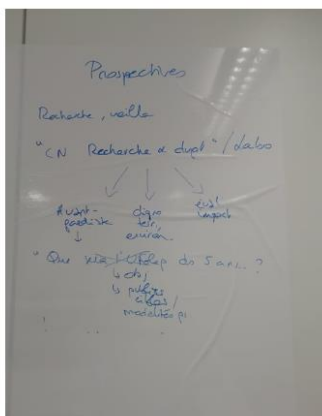 Prospectives
Recherche, veille
"CN Recherche & dvpt" / Labo
Avant-gardiste diagno terr, environ. éval impact
"Que sera l'Ufolep ds 5 ans..?
↳ obj
↳ publics cibles /
modalités pi